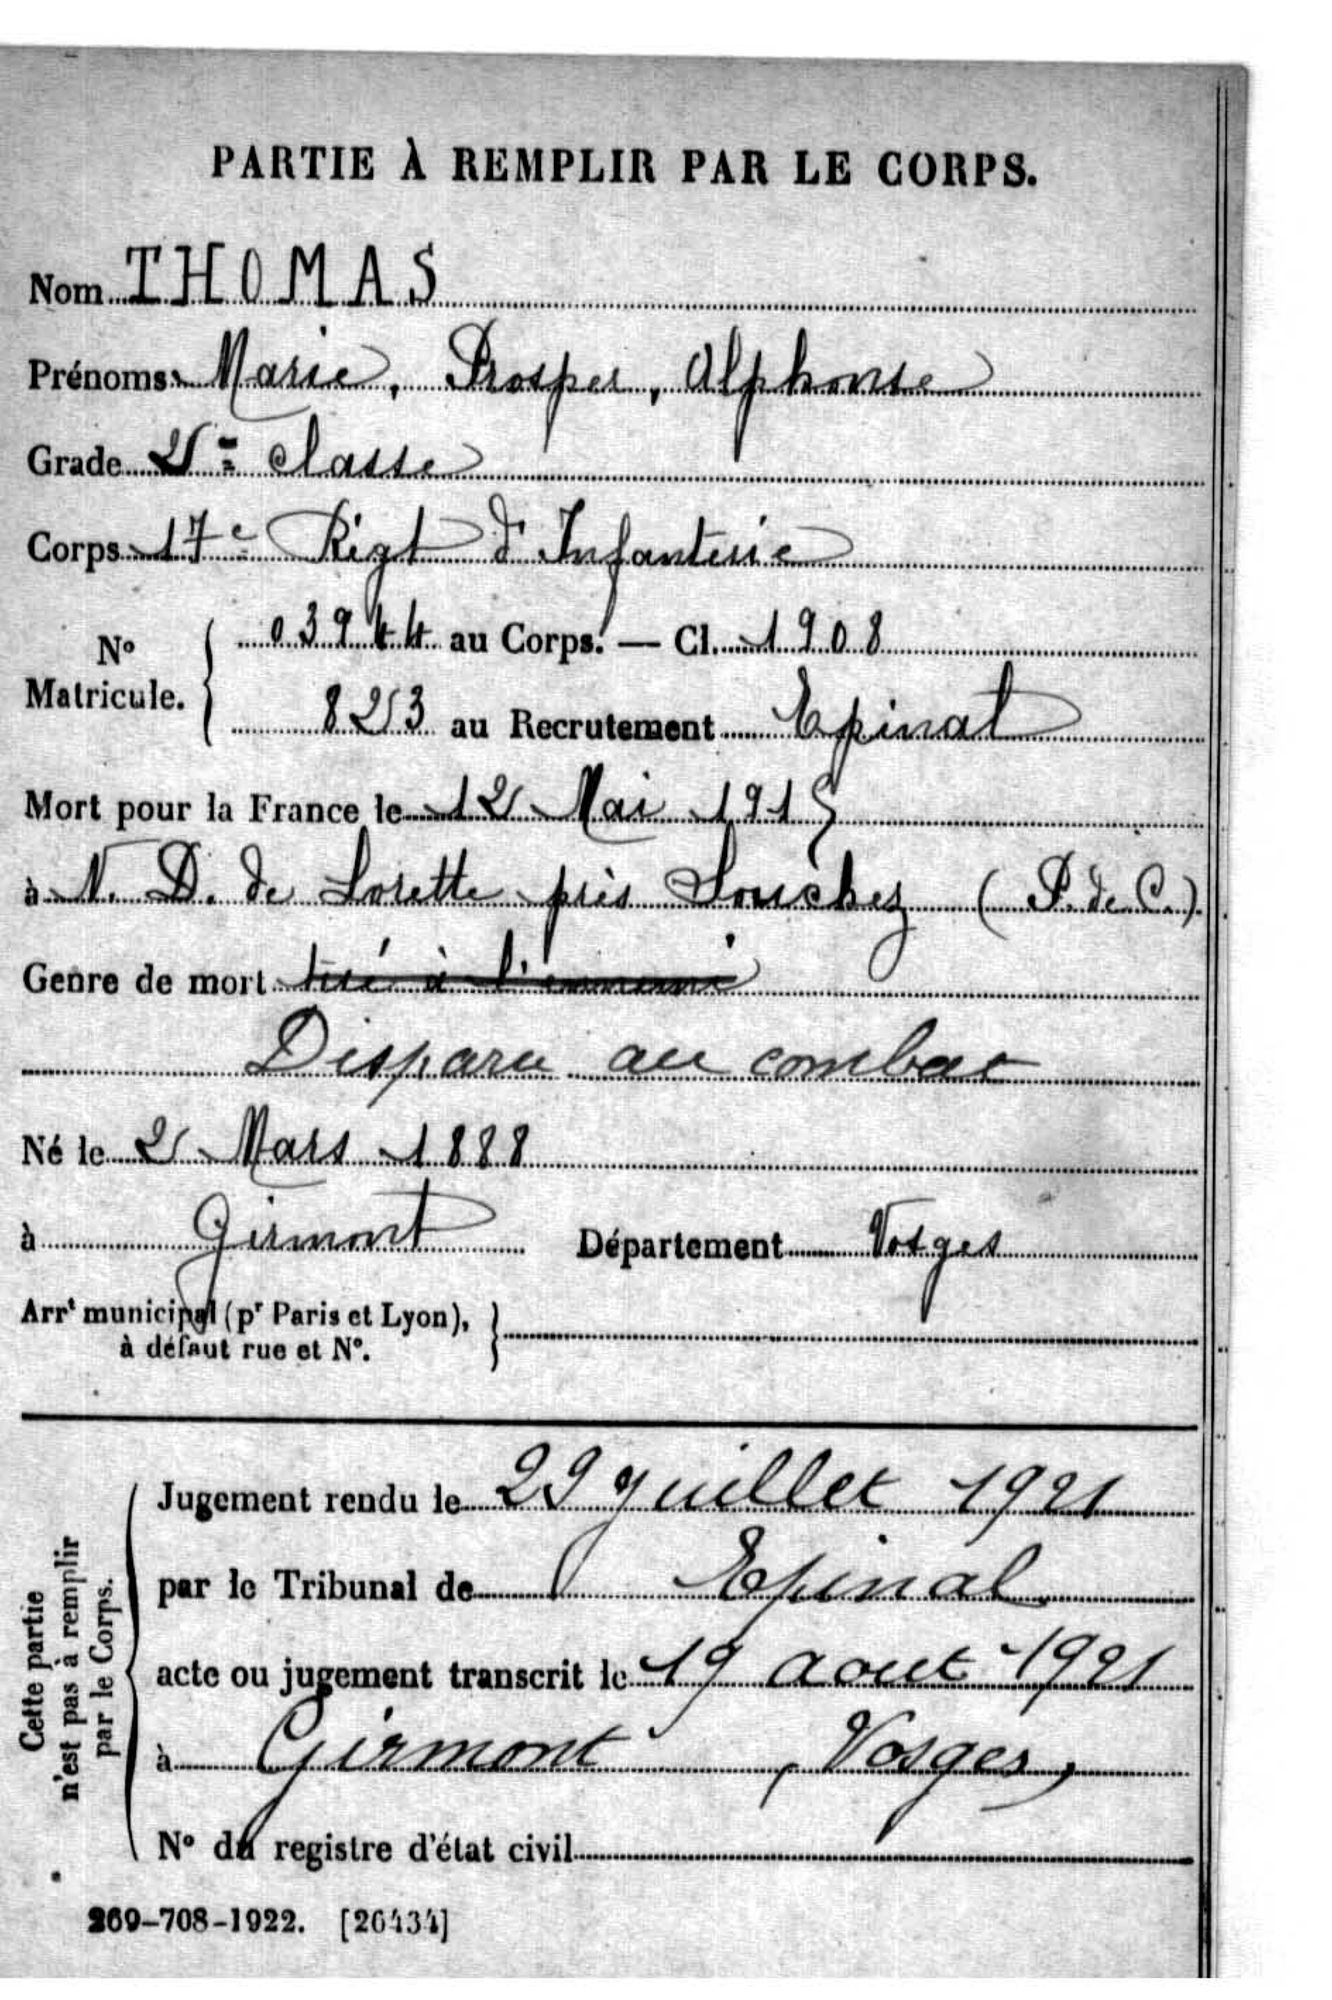 PARTIE À REMPLIR PAR LE CORPS.
Nom THOMAS
Prénoms Marie, Prosper, Alphonse
Grade 2e classe
Corps 17e Régt d'Infanterie
No Matricule. { 03944 au Corps. — Cl. 1908
823 au Recrutement Epinal
Mort pour la France le 12 Mai 1915
à N. D. de Lorette près Souchez (P. de C.)
Genre de mort tué à l'ennemi
Disparu au combat
Né le 2 Mars 1888
à Girmont Département Vosges
Arrt municipal (pr Paris et Lyon), }
à défaut rue et No.
Cette partie n'est pas à remplir par le Corps.
Jugement rendu le 29 Juillet 1921
par le Tribunal de Epinal
acte ou jugement transcrit le 19 aout 1921
à Girmont (Vosges)
No du registre d'état civil
269-708-1922. [26434]